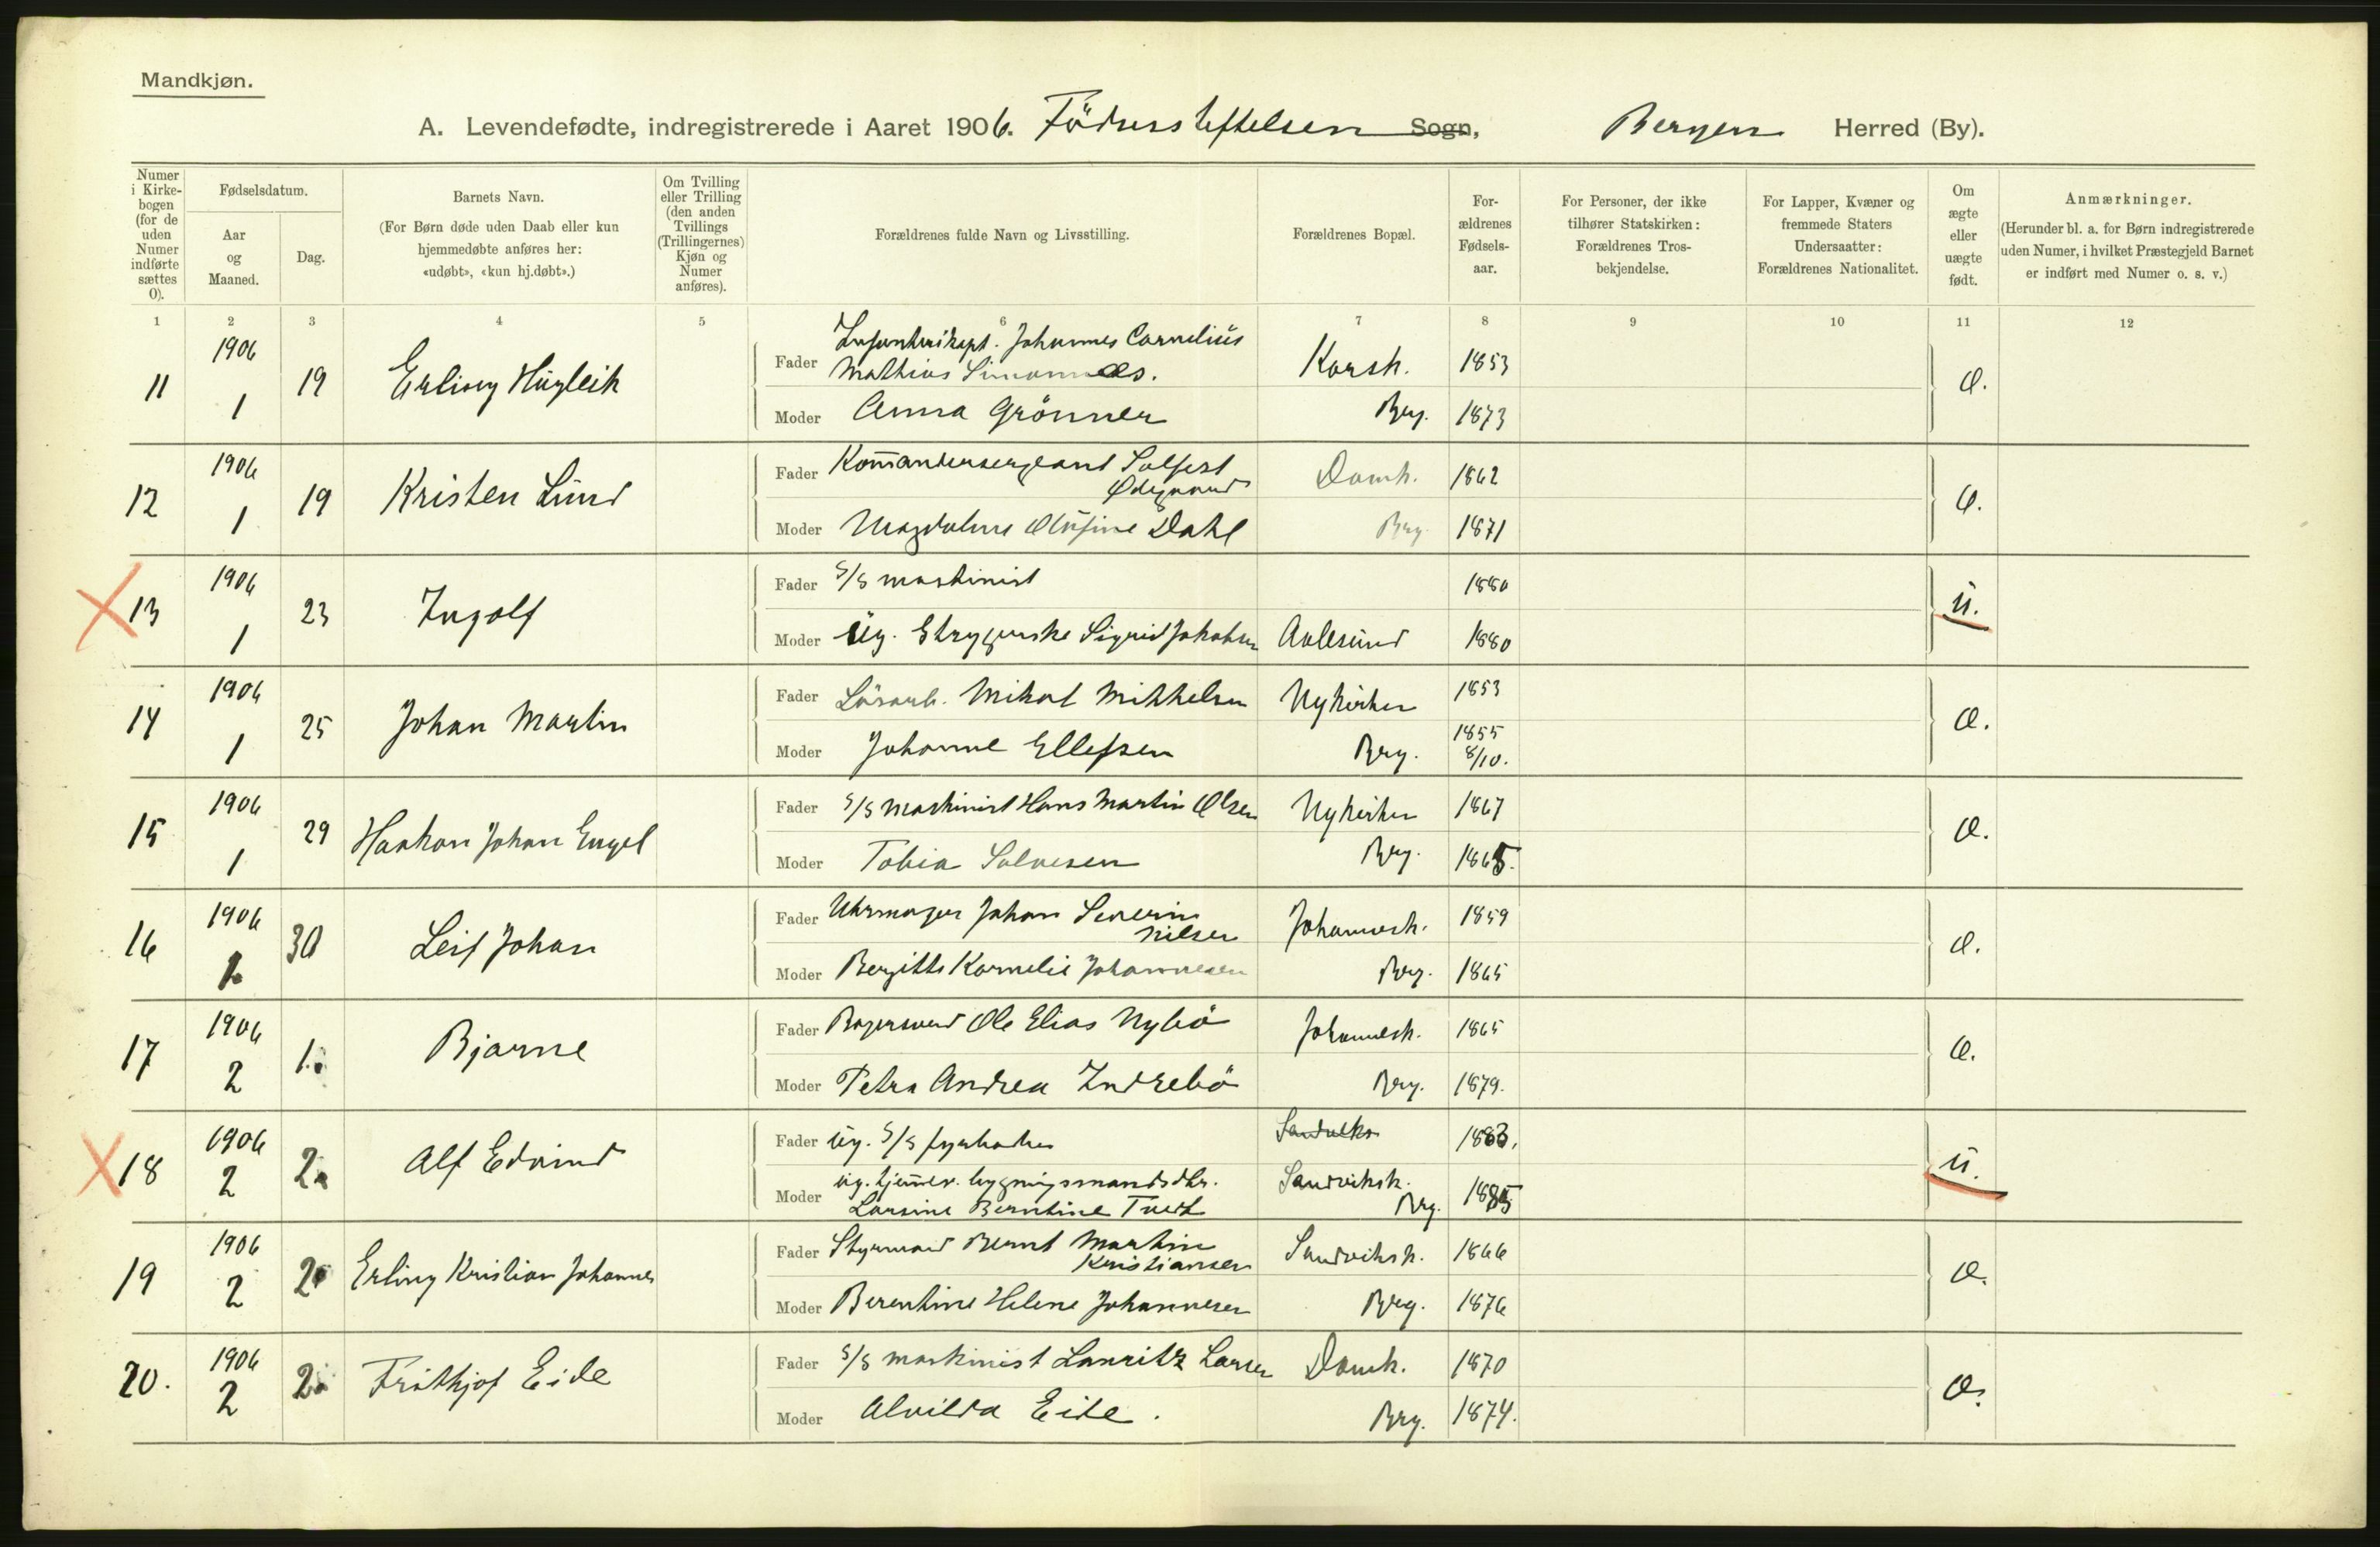 Mandkjøn.
A. Levendefødte, indregistrerede i Aaret 1906. Födselsstiftelsen Sogn, Bergen Herred (By).
Numer i Kirkebogen (for de uden Numer indførte sættes 0).
Fødselsdatum.
Aar og Maaned.
Dag.
Barnets Navn.
(For Børn døde uden Daab eller kun hjemmedøbte anføres her: «udøbt», «kun hj.døbt».)
Om Tvilling eller Trilling (den anden Tvillings (Trillingernes) Kjøn og Numer anføres).
Forældrenes fulde Navn og Livsstilling.
Forældrenes Bopæl.
Forældrenes Fødselsaar.
For Personer, der ikke tilhører Statskirken: Forældrenes Trosbekjendelse.
For Lapper, Kvæner og fremmede Staters Undersaatter: Forældrenes Nationalitet.
Om ægte eller uægte født.
Anmærkninger.
(Herunder bl. a. for Børn indregistrerede uden Numer, i hvilket Præstegjeld Barnet er indført med Numer o. s. v.)
1 2 3 4 5 6 7 8 9 10 11 12
11 1906 1 19 Erling Hugleik
Fader Infanterikapt. Johannes Cornelius Mathias Simonnæs. Korsk. 1853
Moder Anna Grönner Brg. 1873 Æ.
12 1906 1 19 Kristen Lund
Fader Kommandersergeant Ødegaard Domk. 1862
Moder Magdalene Olufine Dahl Brg. 1871 Æ.
13 1906 1 23 Ingolf
Fader S/S maskinist 1880
Moder Ug. Strygerske Sigrid Jakobsen Aalesund 1880 U.
14 1906 1 25 Johan Martin
Fader Lösarb. Mikal Mikkelsen Nykirken 1853
Moder Johanne Ellefsen Brg. 1855 8/10. Æ.
15 1906 1 29 Haakon Johan Engel
Fader S/S maskinist Hans Martin Olsen Nykirken 1867
Moder Tobia Salvesen Brg. 1865. Æ.
16 1906 1 30 Leif Johan
Fader Uhrmager Johan Severin Nilsen Johannesk. 1859
Moder Bergitte Kornelie Johannesen Brg. 1865 Æ.
17 1906 2 1 Bjarne
Fader Bagersvend Ole Elias Nybö Johannesk. 1865
Moder Petra Andrea Indrebö Brg. 1879. Æ.
18 1906 2 2 Alf Edvind
Fader Ug. S/S fyrböder 1883.
Moder ug. tjenner. bygningsmandsdtr. Larsine Berntine Tvedt Sandviksk. Brg. 1885 U.
19 1906 2 2 Erling Kristian Johannes
Fader Styrmand Bernt Martin Kristiansen Sandviksk. 1866
Moder Berentine Helene Johannesen Brg. 1876 Æ.
20. 1906 2 2 Fridthjof Eide
Fader S/S maskinist Lauritz Larsen Domk. 1870
Moder Alvilda Eide. Brg. 1874. Æ.